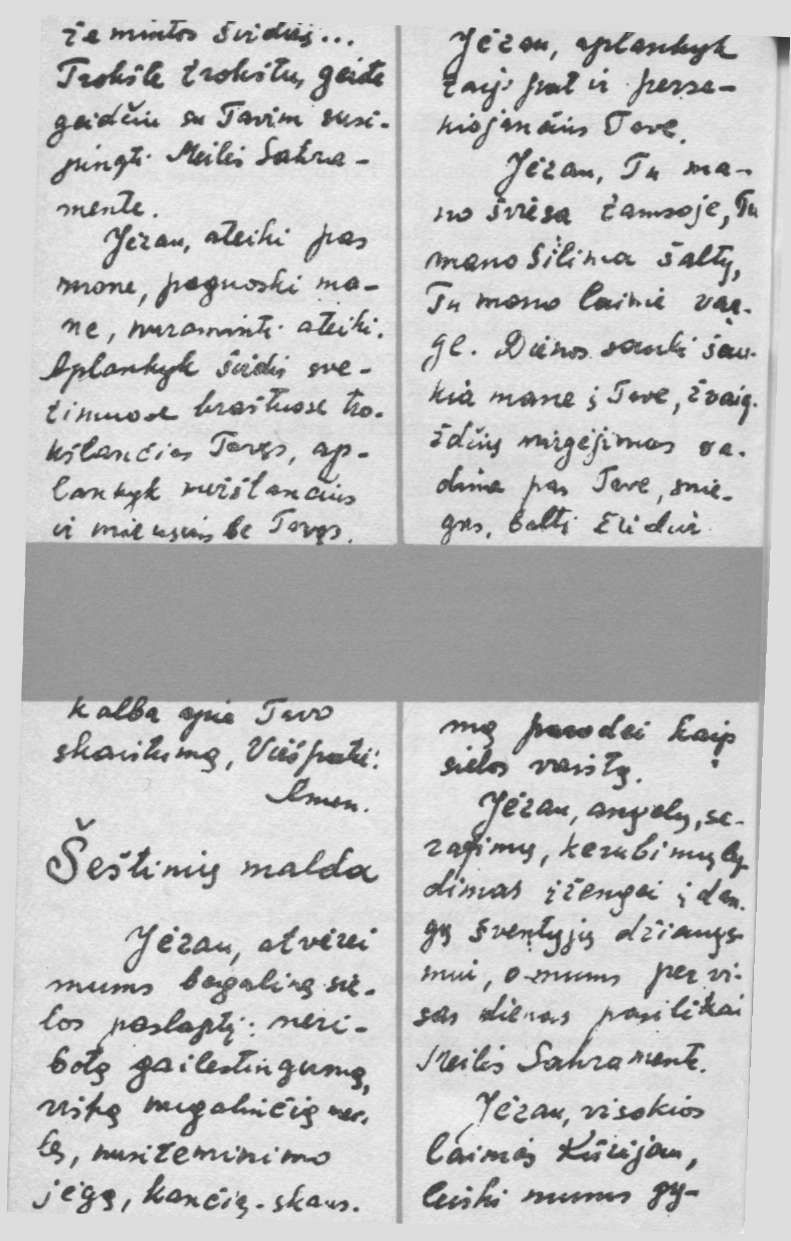 žemintos širdies...
Trokšte trokštu, geiste
geidžiu su Tavim susi-
jungti Meilės Sakra-
mente.
Jėzau, ateiki pas
mane, paguoski ma-
ne, nuraminti ateiki.
Aplankyk širdis sve-
timuose kraštuose tro-
kštančias Tavęs, ap-
lankyk mirštančius
ir mirusius be Tavęs.
Jėzau, aplankyk
taip pat ir perse-
kiojančius Tave.
Jėzau, Tu ma-
no šviesa tamsoje, Tu
mano šilima šalty,
Tu mano laimė var-
ge. Dienos saulė šau-
kia mane į Tave, žvaig-
ždžių mirgėjimas va-
dina pas Tave, snie-
gas, balti žiedai
kalba apie Tavo
skaistumą, Viešpatie!
Amen.
Šeštinių malda
Jėzau, atvėrei
mums begalinę sie-
los paslaptį: neri-
botą gailestingumą,
viską nugalinčią mei-
lę, nusižeminimo
jėgą, kančią-skaus-
mą parodei kaip
sielos vaistą.
Jėzau, angelų, se-
rafimų, kerubimų ly-
dimas įžengei į dan-
gų šventųjų džiaugs-
mui, o mums per vi-
sas dienas pasilikai
Meilės Sakramente.
Jėzau, visokios
laimės Kūrėjau,
leiski mums gy-